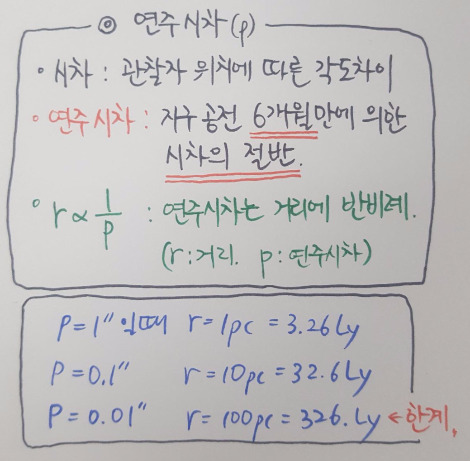 ◎ 연주시차(p)
• 시차 : 관찰자 위치에 따른 각도차이
• 연주시차 : 지구 공전 6개월만에 의한
시차의 절반.
• r ∝ 1/p : 연주시차는 거리에 반비례.
(r : 거리. p : 연주시차)
P = 1" 일때 r = 1pc = 3.26 Ly
P = 0.1" r = 10pc = 32.6 Ly
P = 0.01" r = 100pc = 326. Ly ← 한계,